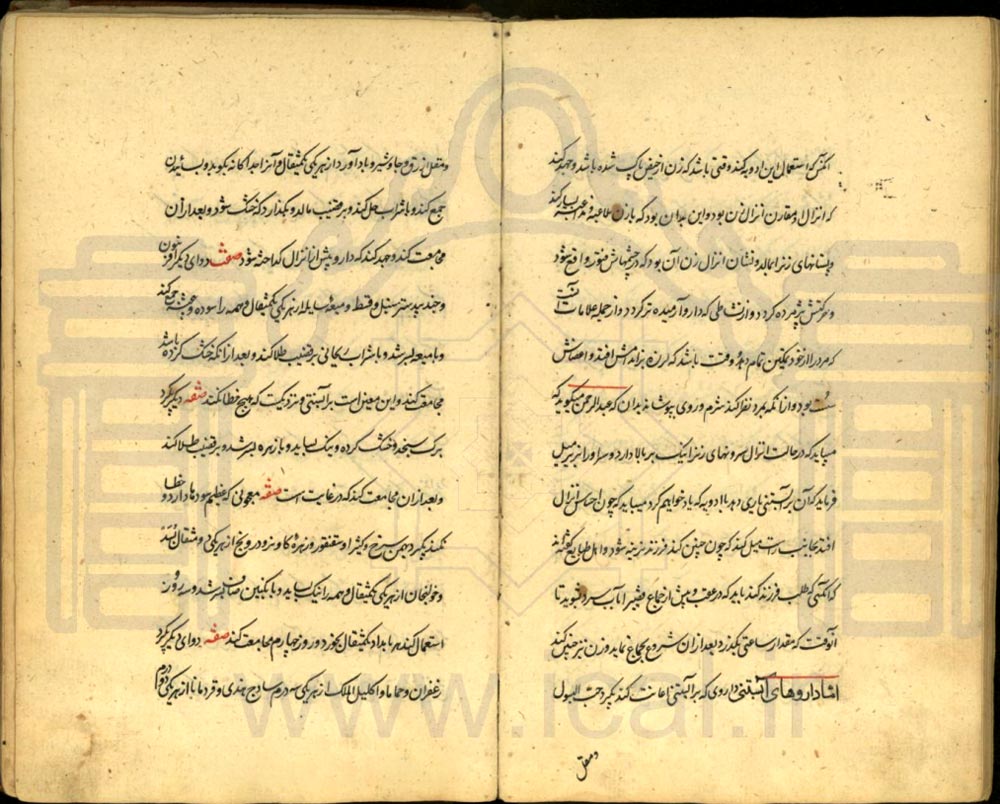 انکس که استعمال این ادویه کند وقتی باشد که زن از حیض پاک شده باشد و جهد کند
که انزال او مقارن انزال زن بود و این بدان بود که با زن ملاعبه
و پستانهای زن را بمالد و نشان انزال زن آن بود که در چشمهاش فتور واقع شود
و حرکتش پژمرده گردد و از نشاطی که دارد آرمیده تر گردد و از جمله علامات آنست
که مرد را از خود تمکین تمام دهد و وقت باشد که لرزه بر اندامش افتد و اعضاش
سست بود و از آنکه بمرد نظر کند شرم و روی بپوشاند بدان که عبدالرحمن میگوید که
میباید که در حالت انزال سرونهای زن را نیک بر بالا دارد و سر او را بزیر میل
فرماید که آن بر آبستنی یاری دهد با ادویه که یاد خواهیم کرد میباید که چون احساس انزال
افتد بجانب راست میل کند که چون چنین کند فرزند نرینه شود و اهل طبایع گفته اند
که انکس که طلب فرزند کند باید که در عقب و پیش از جماع قضیب را بآب سرد بشوید تا
آنوقت که مقدار ساعتی بگذرد بعد از ان شروع بجماع نماید و زن نیز چنین کند
اما داروهای آبستنی داروی که بر آبستنی اعانت کند بگیرد حب البول
و مقل
و مقل ازرق و جاوشیر و بادآورد از هر یکی یکمثقال و آنرا جداگانه بکوبد و بساید پس
جمع کند و با شراب حل کند و بر قضیب مالد و بگذارد که خشک شود و بعد از ان
مجامعت کند و جهد کند که دارو پیش از انزال گداخته شود صفت دوای دیگر
و جند بیدستر سنبل و قسط و میعه سایله از هر یکی یکمثقال و همه را سوده
و با میعه بسرشد و با شراب ریحانی بر قضیب طلا کند و بعد از آنکه خشک گردد باشد
مجامعت کند و این معین است بر آبستنی و نزدیکست که هیچ خطا نکند صفة دیگر بگیرد
برک سنجد و خشک کرده و نیک بساید و با زهره بسرشد و بر قضیب طلا کند
و بعد از ان مجامعت کند که در غایت است صفة معجونی که عظیم سود دارد و خطا
نکند بگیرد بهمن سرخ و کثیرا و سقنقور و زهره گاو نر و درونج از هر یکی دو مثقال
و خولنجان از هر یکی یکمثقال و همه را نیک بساید و با انگبین صاف بسرشد و سه روز
استعمال کند هر بامداد یکمثقال بخورد و روز چهارم مجامعت کند صفة دوای دیگر بگیرد
زعفران و حماما و اکلیل الملک از هر یکی سه درم سادج هندی و قردمانا از هر یکی دو درم
www.ical.ir